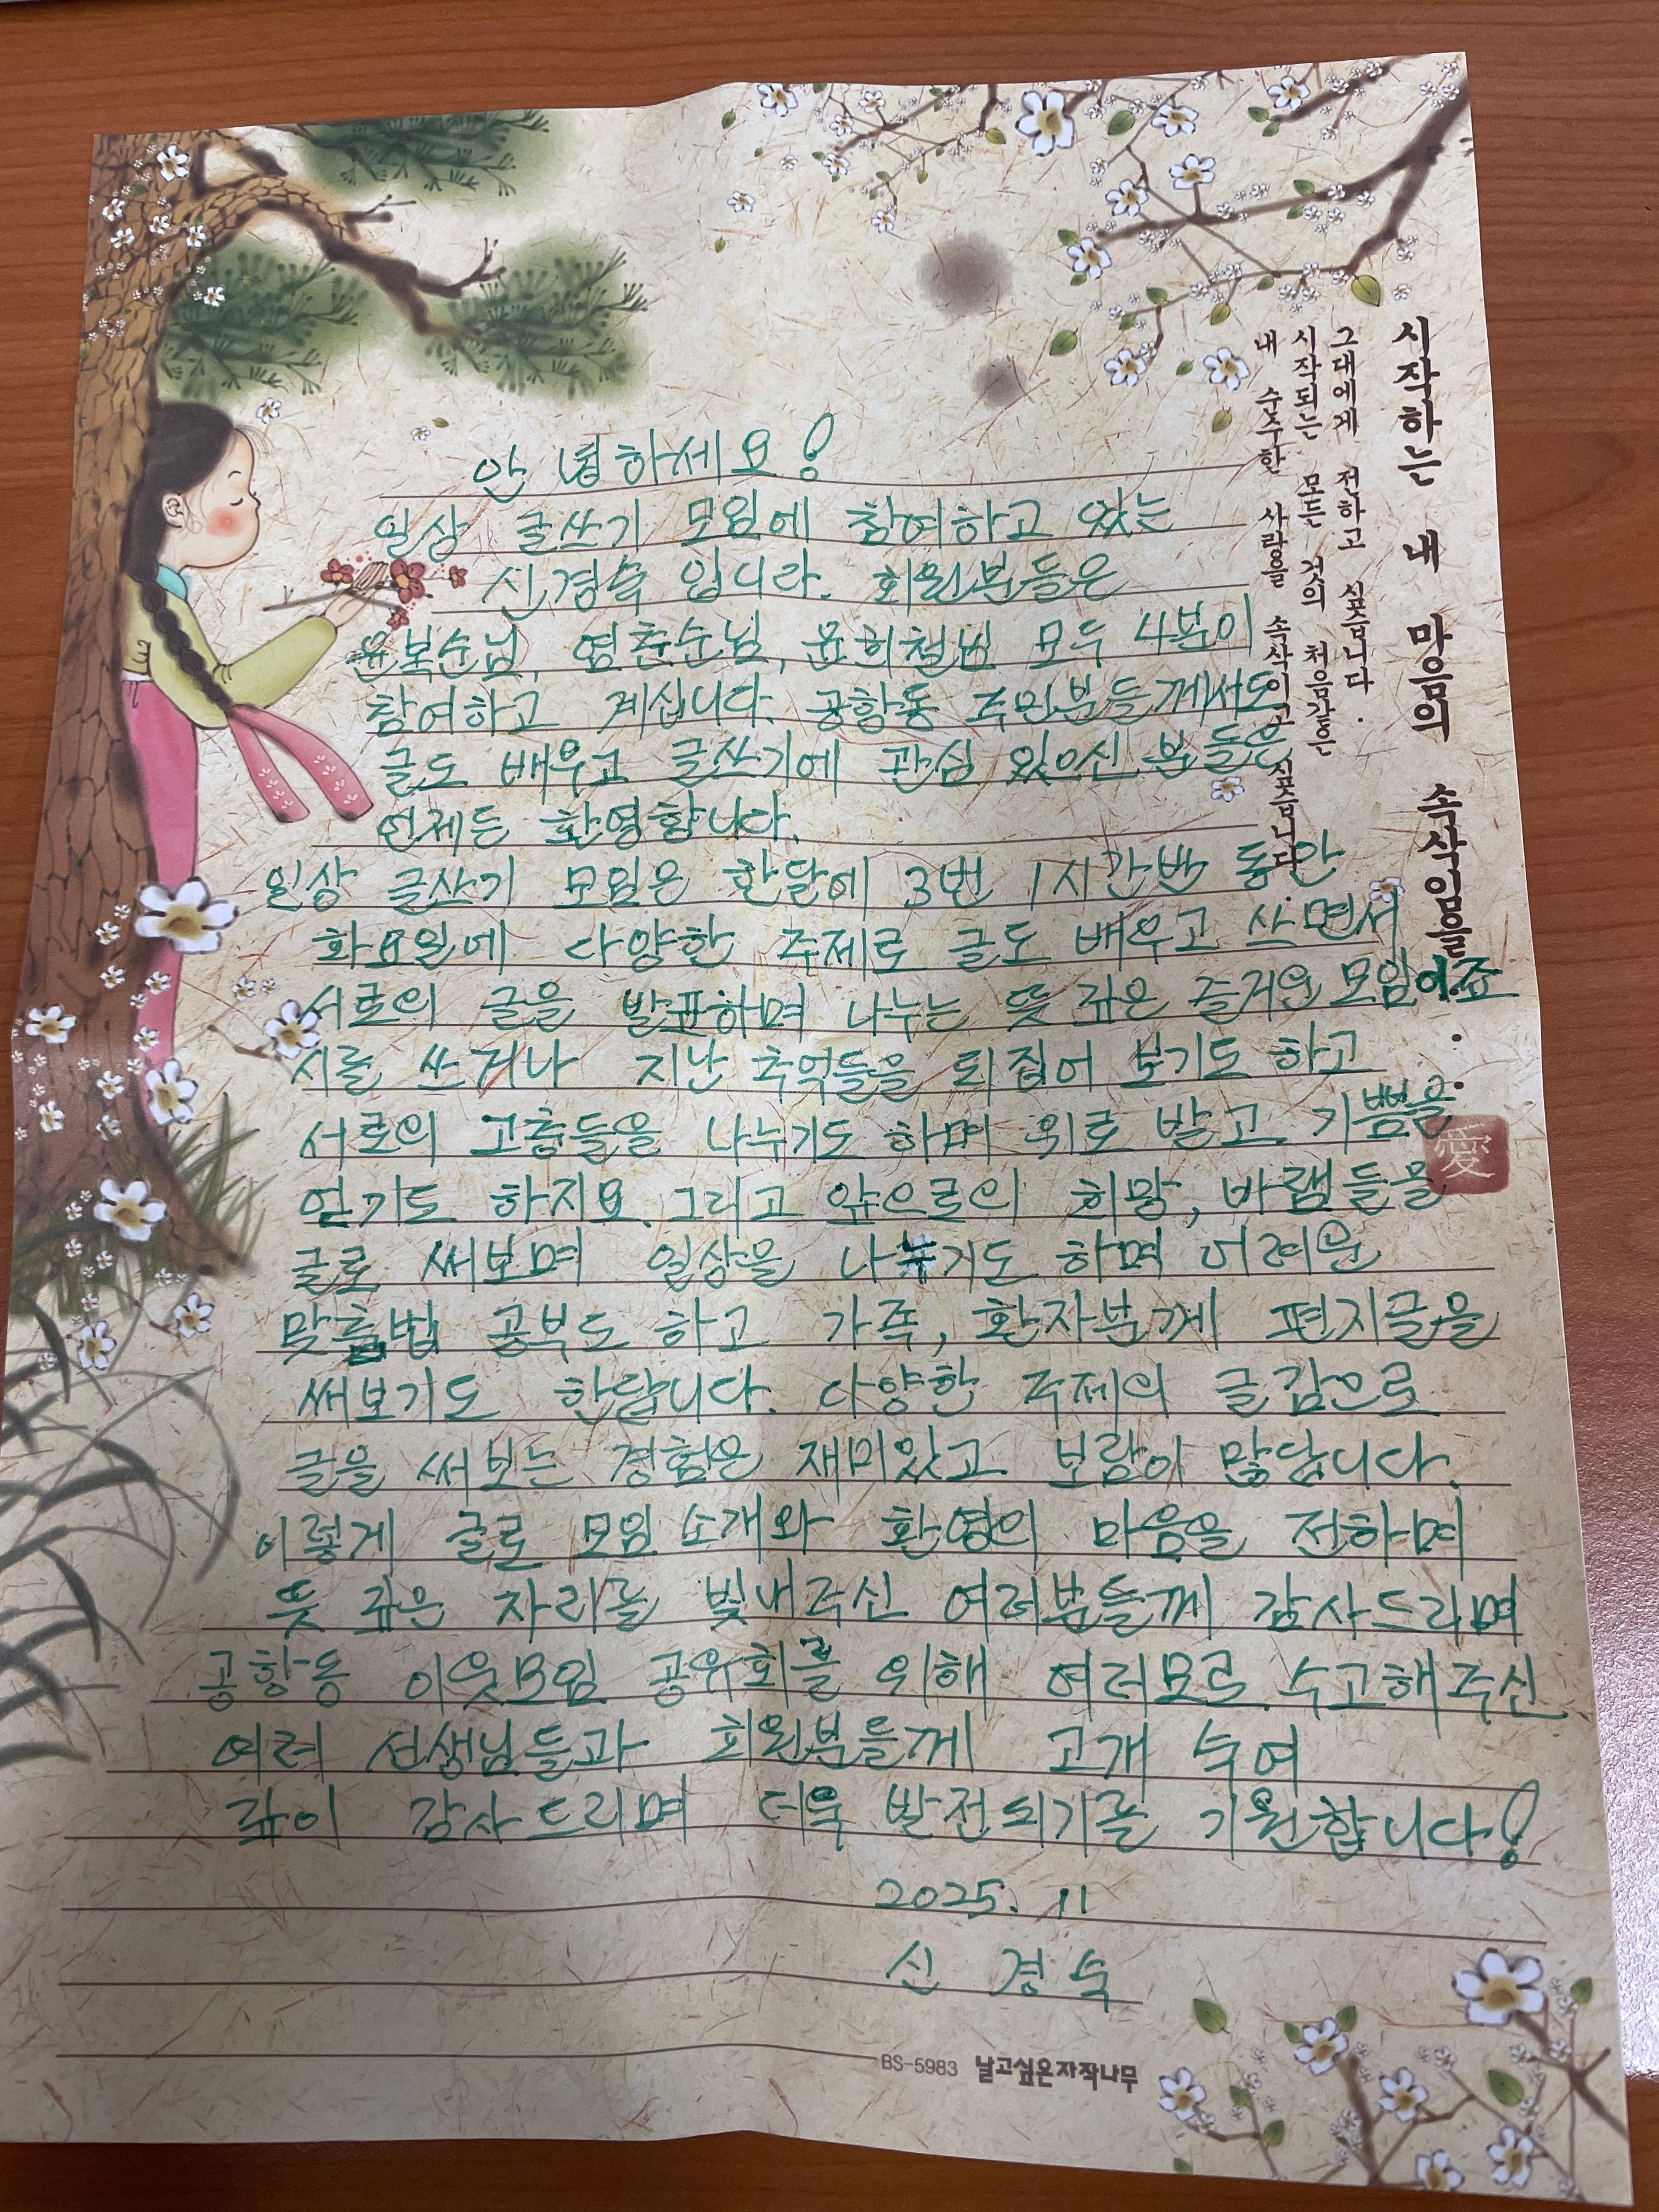 시작하는 내 마음의 속삭임을...
그대에게 전하고 싶습니다.
시작되는 모든 것의 처음같은
내 순수한 사랑을 속삭이고 싶습니다.
愛
안녕하세요!
일상 글쓰기 모임에 참여하고 있는
신경숙 입니다. 회원분들은
윤복순님, 염춘순님, 윤희철님 모두 4분이
참여하고 계십니다. 공항동 주민분들께서도
글도 배우고 글쓰기에 관심 있으신 분들은
언제든 환영합니다.
일상 글쓰기 모임은 한달에 3번 1시간반 동안
화요일에 다양한 주제로 글도 배우고 쓰면서
서로의 글을 발표하며 나누는 뜻 깊은 즐거운 모임이죠
시를 쓰거나 지난 추억들을 되집어 보기도 하고
서로의 고충들을 나누기도 하며 위로 받고 기쁨을
얻기도 하지요. 그리고 앞으로의 희망, 바램들을
글로 써보며 일상을 나누기도 하며 어려운
맞춤법 공부도 하고 가족, 환자분께 편지글을
써보기도 한답니다. 다양한 주제의 글감으로
글을 써보는 경험은 재미있고 보람이 많답니다.
이렇게 글로 모임 소개와 환영의 마음을 전하며
뜻 깊은 자리를 빛내주신 여러분들께 감사드리며
공항동 이웃모임 공유회를 위해 여러모로 수고해주신
여러 선생님들과 회원분들께 고개 숙여
깊이 감사드리며 더욱 발전되기를 기원합니다!
2025. 11
신 경 숙
BS-5983 날고싶은자작나무